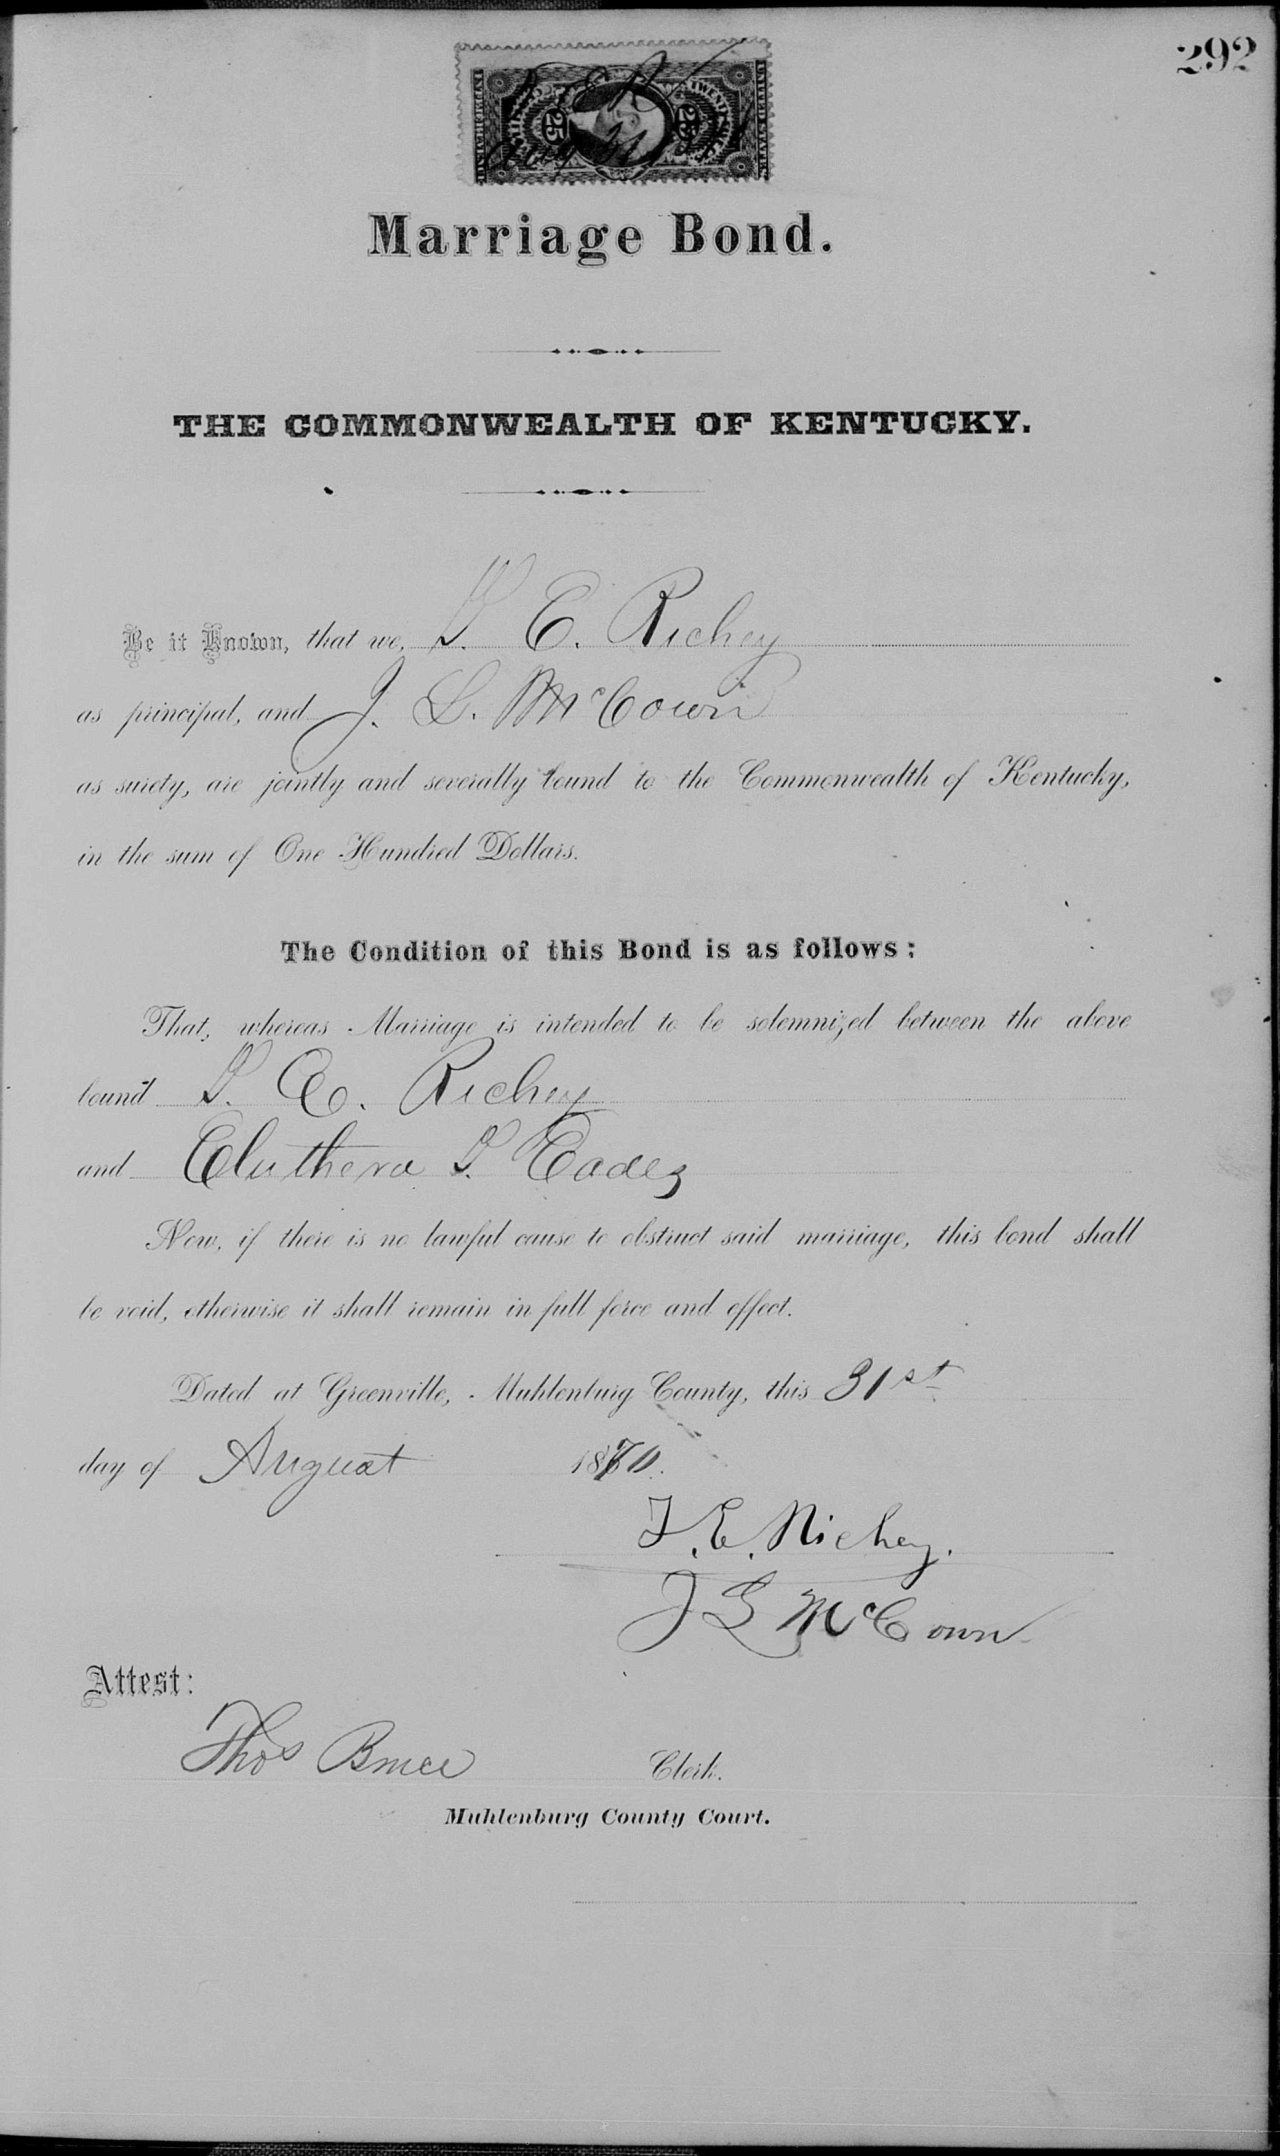 292
25 25
Marriage Bond.
THE COMMONWEALTH OF KENTUCKY.
Be it Known, that we, T. E. Richey
as principal, and J. L. McCown
as surety, are jointly and severally bound to the Commonwealth of Kentucky,
in the sum of One Hundred Dollars.
The Condition of this Bond is as follows:
That, whereas Marriage is intended to be solemnized between the above
bound T. E. Richey
and Eluthera T. Eades
Now, if there is no lawful cause to obstruct said marriage, this bond shall
be void, otherwise it shall remain in full force and effect.
Dated at Greenville, Muhlenburg County, this 31st
day of August 1870.
T. E. Richey.
J L McCown
Attest:
Thos Bruce Clerk.
Muhlenburg County Court.